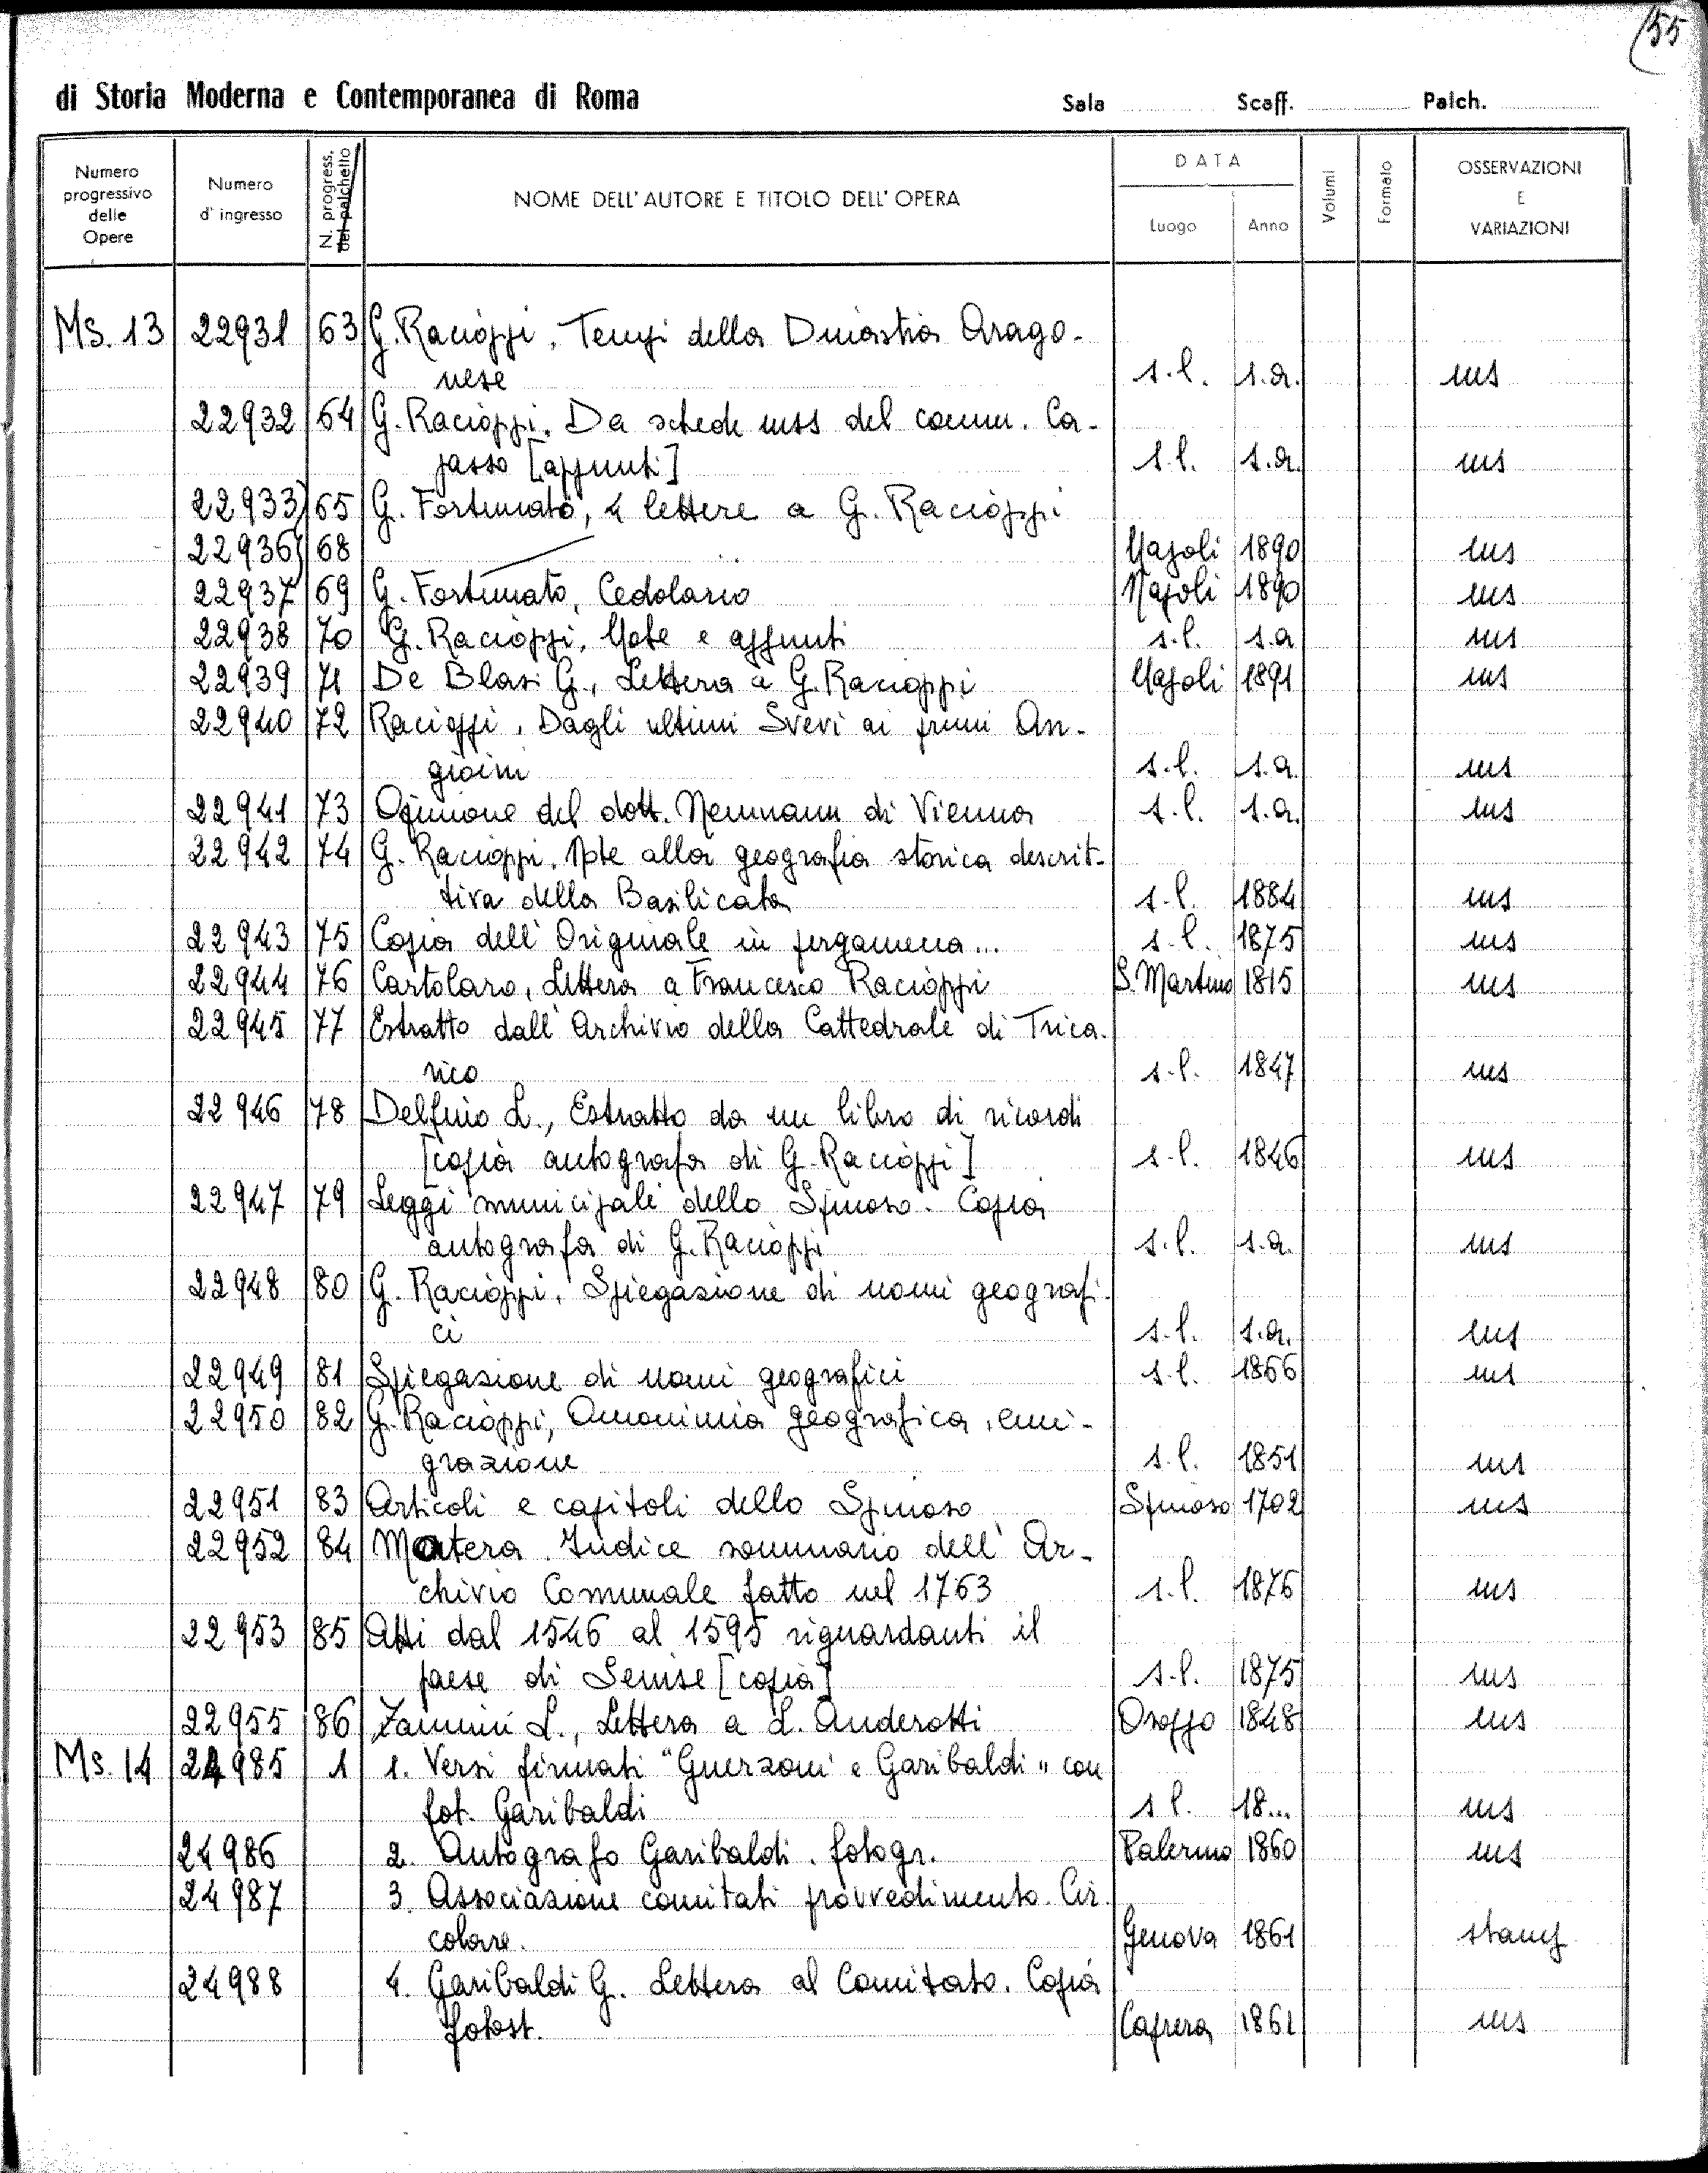 55
di Storia Moderna e Contemporanea di Roma Sala Scaff. Palch.
Numero progressivo delle Opere
Numero d'ingresso
N. progress. del palchetto
NOME DELL'AUTORE E TITOLO DELL'OPERA
DATA
Luogo
Anno
Volumi
Formato
OSSERVAZIONI E VARIAZIONI
Ms. 13 22931 63 G. Racioppi, Tempi della Dinastia Arago-
nese s.l. s.a. ms
22932 64 G. Racioppi. Da schede mss del comm. Ca-
passo [appunti] s.l. s.a. ms
22933 65 G. Fortunato, 4 lettere a G. Racioppi
22936 68 Napoli 1890 ms
22937 69 G. Fortunato, Cedolario Napoli 1890 ms
22938 70 G. Racioppi, Note e appunti s.l. s.a ms
22939 71 De Blasi G., Lettera a G. Racioppi Napoli 1891 ms
22940 72 Racioppi, Dagli ultimi Svevi ai primi An-
gioini s.l. s.a. ms
22941 73 Opinione del dott. Neumann di Vienna s.l. s.a. ms
22942 74 G. Racioppi. Note alla geografia storica descrit-
tiva della Basilicata s.l. 1884 ms
22943 75 Copia dell'Originale in pergamena... s.l. 1875 ms
22944 76 Cartolaro, Lettera a Francesco Racioppi S. Martino 1815 ms
22945 77 Estratto dall'Archivio della Cattedrale di Trica-
rico s.l. 1847 ms
22946 78 Delfino L., Estratto da un libro di ricordi
[copia autografa di G. Racioppi] s.l. 1846 ms
22947 79 Leggi municipali dello Spinoso. Copia
autografa di G. Racioppi s.l. s.a. ms
22948 80 G. Racioppi, Spiegazione di nomi geografi-
ci s.l. s.a. ms
22949 81 Spiegazione di nomi geografici s.l. 1866 ms
22950 82 G. Racioppi, Omonimia geografica, emi-
grazione s.l. 1851 ms
22951 83 Articoli e capitoli dello Spinoso Spinoso 1702 ms
22952 84 Matera. Indice sommario dell'Ar-
chivio Comunale fatto nel 1763 s.l. 1876 ms
22953 85 Atti dal 1546 al 1595 riguardanti il
paese di Senise [copia] s.l. 1875 ms
22955 86 Zannini L., Lettera a L. Anderotti Osoppo 1848 ms
Ms. 14 24985 1 1. Versi firmati "Guerzoni e Garibaldi" con
fot. Garibaldi s l. 18... ms
24986 2. Autografo Garibaldi. fotogr. Palermo 1860 ms
24987 3. Associazione comitati provvedimento. Cir-
colare. Genova 1861 stamp
24988 4. Garibaldi G. Lettera al Comitato. Copia
fotost. Caprera 1861 ms